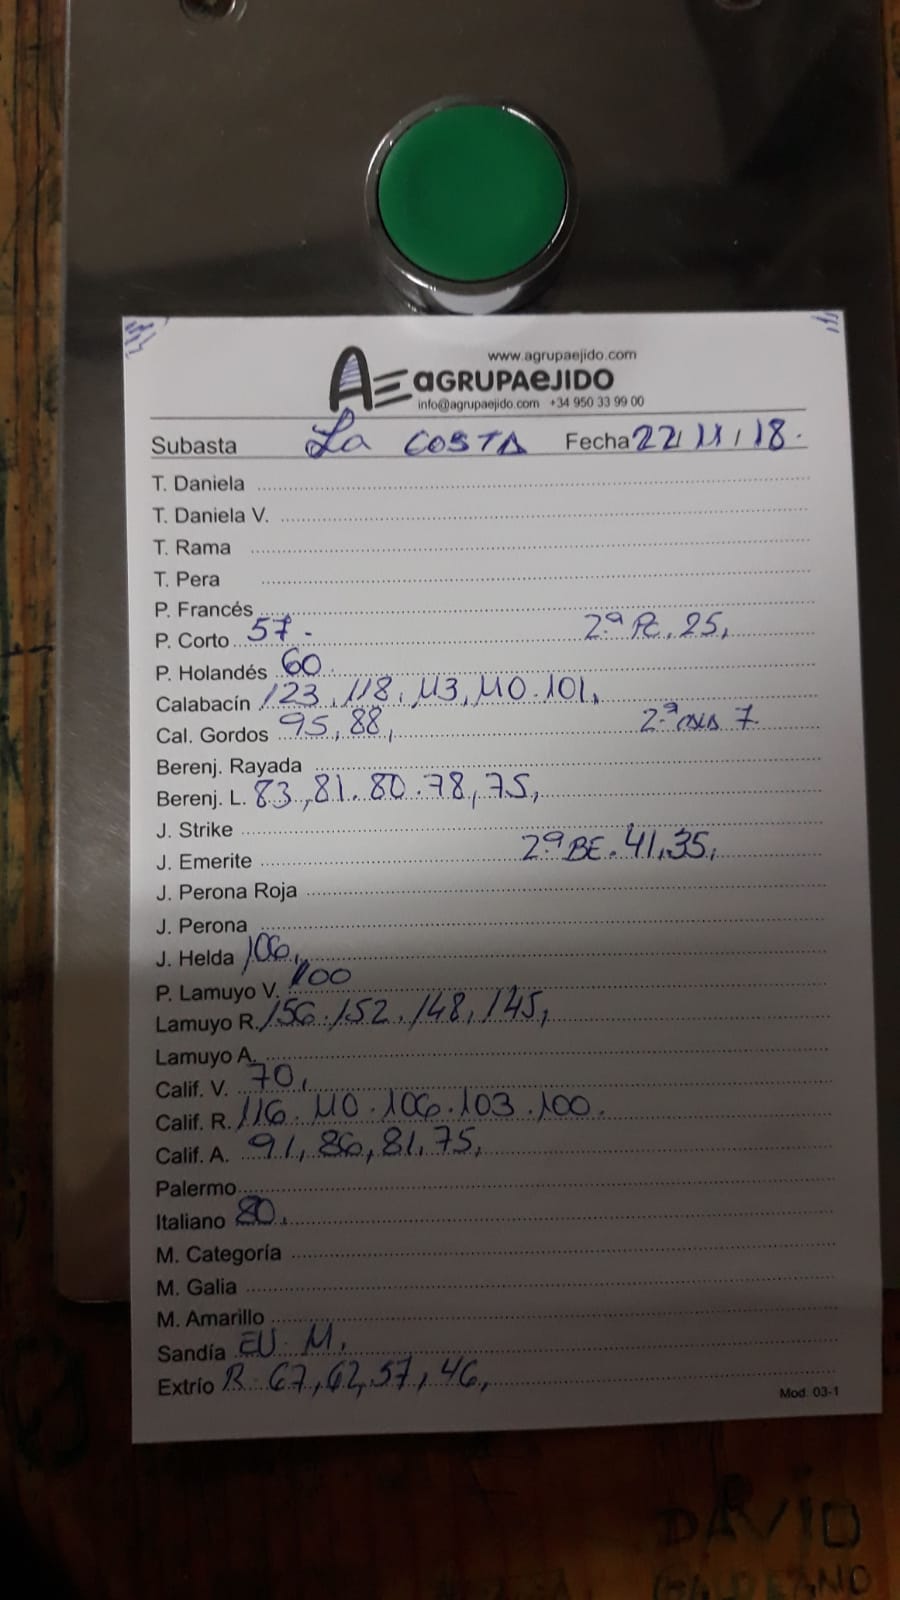 www.agrupaejido.com
AE aGRUPAeJIDO
info@agrupaejido.com +34 950 33 99 00
Subasta La COSTA Fecha 22/11/18.
T. Daniela
T. Daniela V.
T. Rama
T. Pera
P. Francés
P. Corto 57. 2ª PC. 25,
P. Holandés 60
Calabacín 123, 118, 113, 110. 101,
Cal. Gordos 95, 88, 2ª 7.
Berenj. Rayada
Berenj. L. 83, 81. 80. 78, 75,
J. Strike
J. Emerite 2ª BE. 41, 35,
J. Perona Roja
J. Perona
J. Helda 106,
P. Lamuyo V. 100
Lamuyo R. 156. 152. 148, 145,
Lamuyo A.
Calif. V. 70,
Calif. R. 116. 110. 106. 103. 100.
Calif. A. 91, 86, 81, 75,
Palermo
Italiano 80.
M. Categoría
M. Galia
M. Amarillo
Sandía
Extrío R. 67, 62, 57, 46,
Mod. 03-1
DAVID